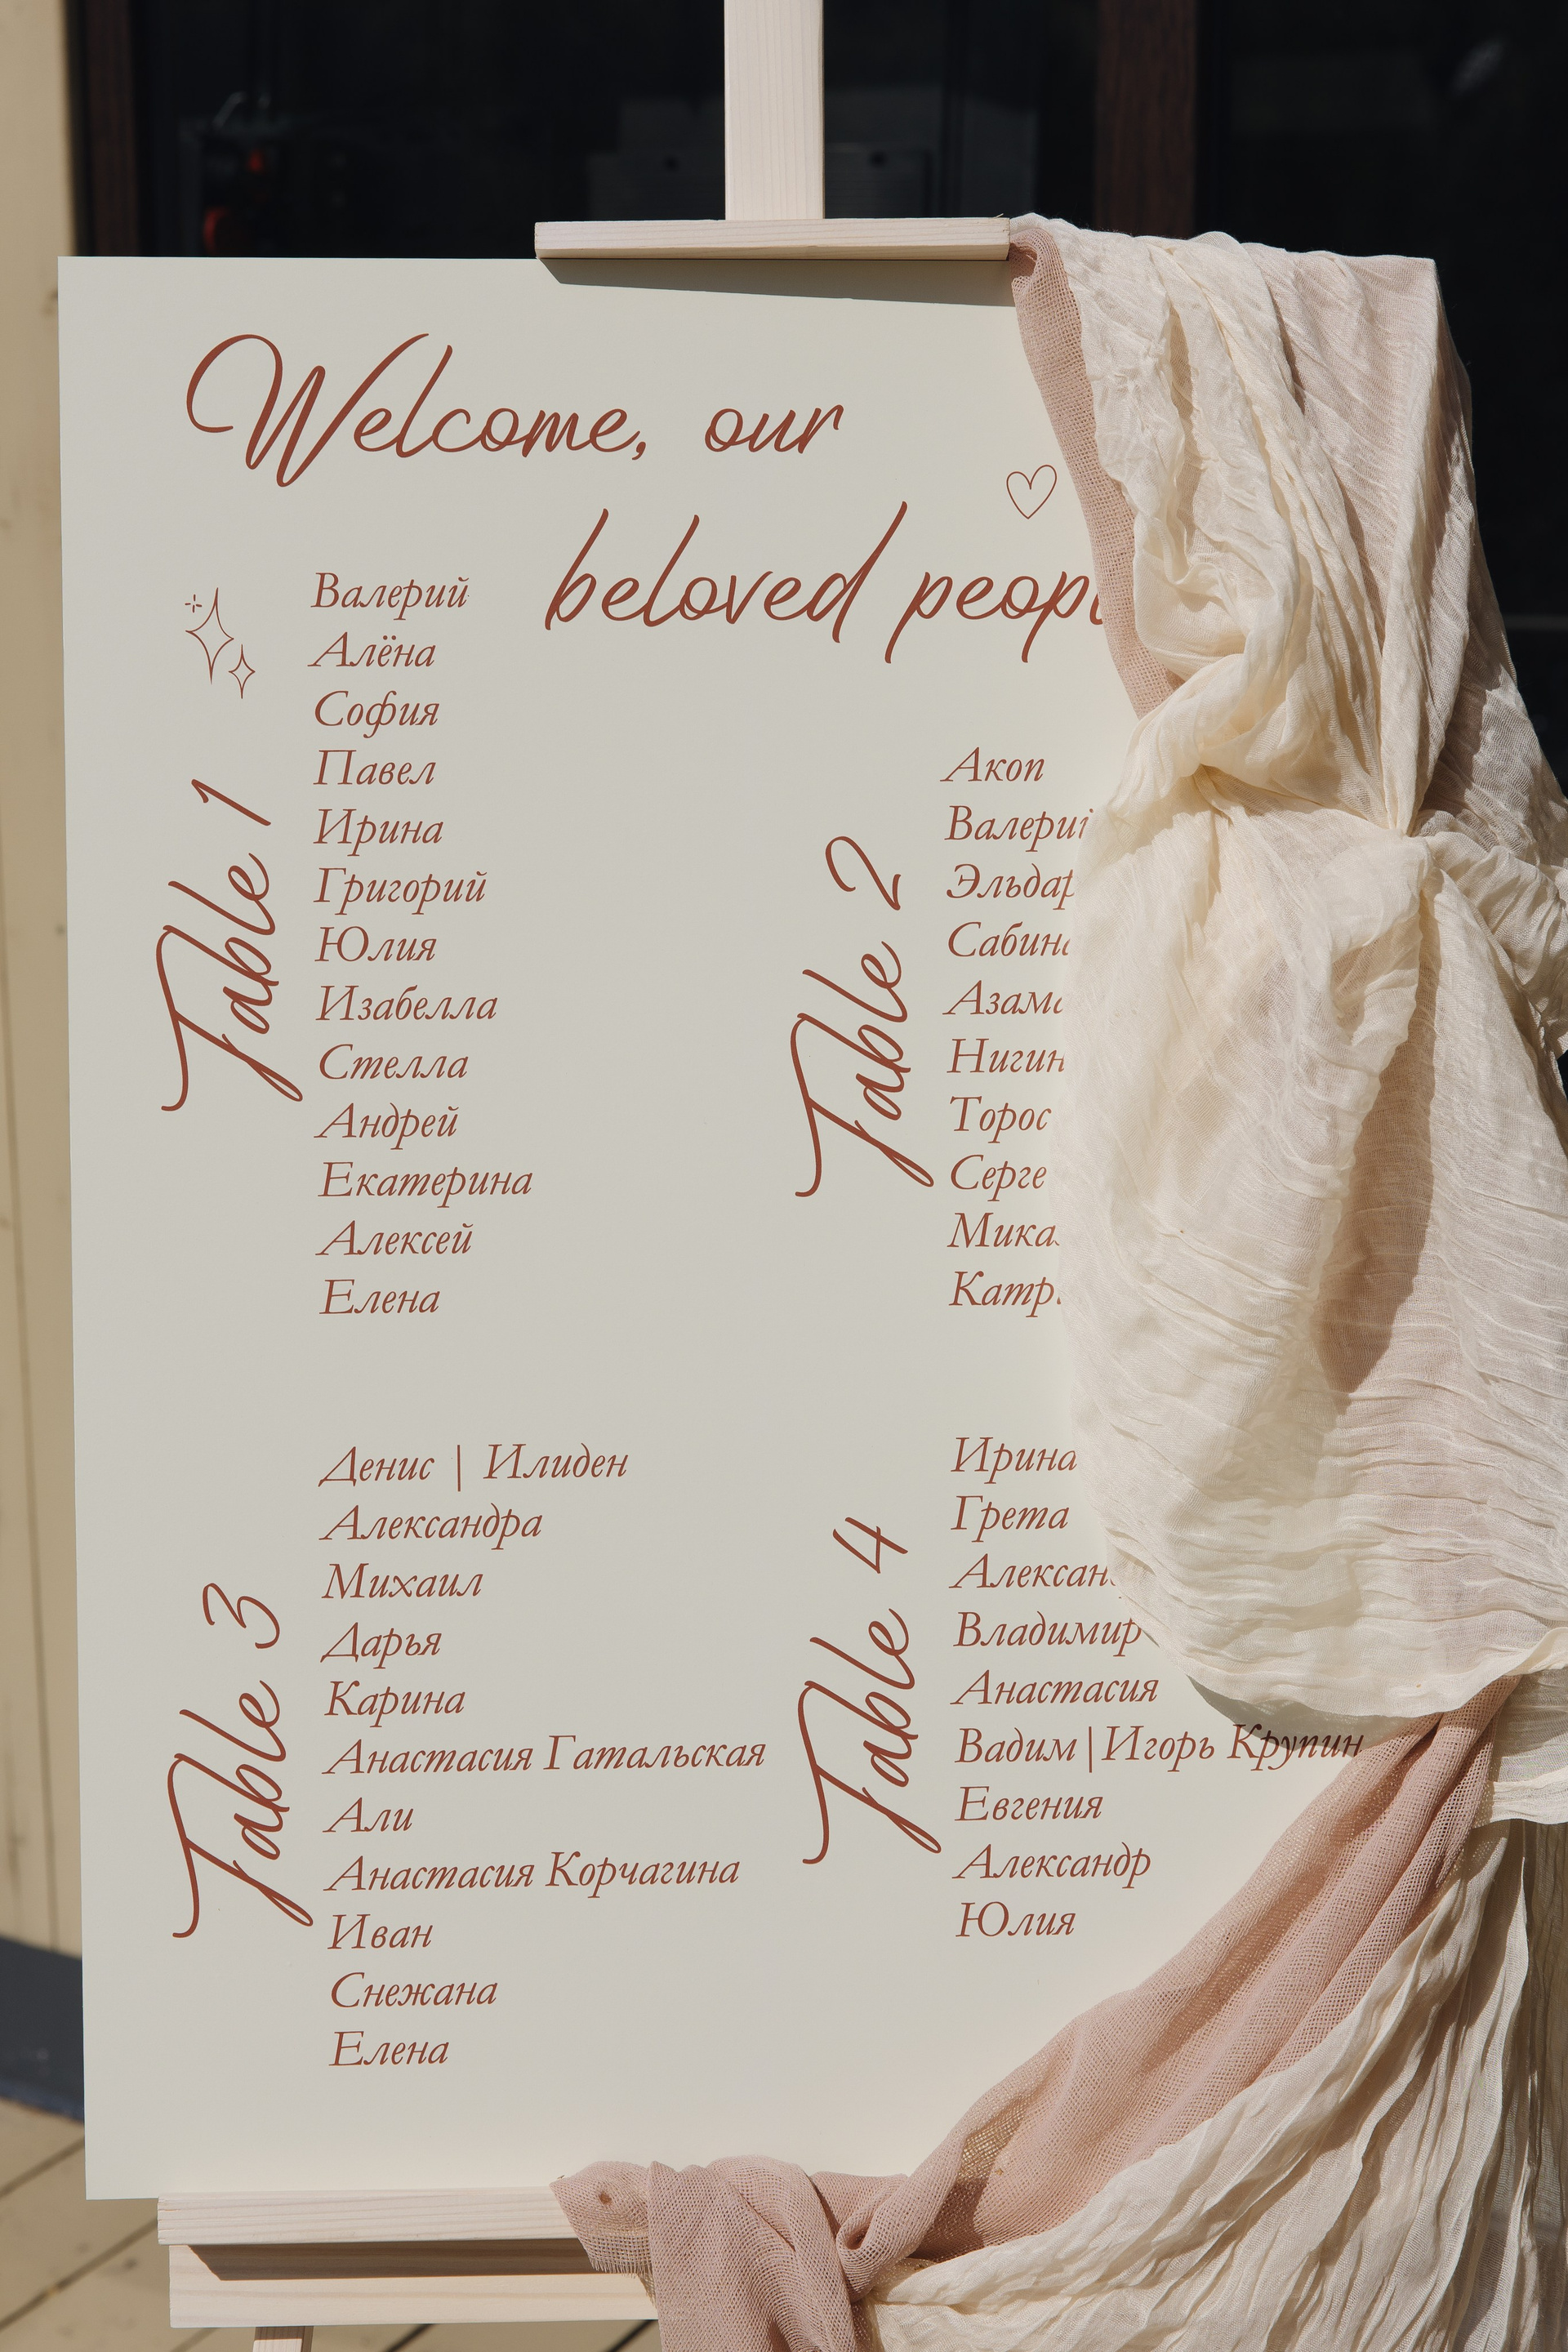 Welcome, our
beloved
Table 1
Валерий
Алёна
София
Павел
Ирина
Григорий
Юлия
Изабелла
Стелла
Андрей
Екатерина
Алексей
Елена
Table 2
Акоп
Торос
Table 3
Денис | Илиден
Александра
Михаил
Дарья
Карина
Анастасия Гатальская
Али
Анастасия Корчагина
Иван
Снежана
Елена
Table 4
Ирина
Грета
Владимир
Анастасия
Вадим|Игорь Крупин
Евгения
Александр
Юлия